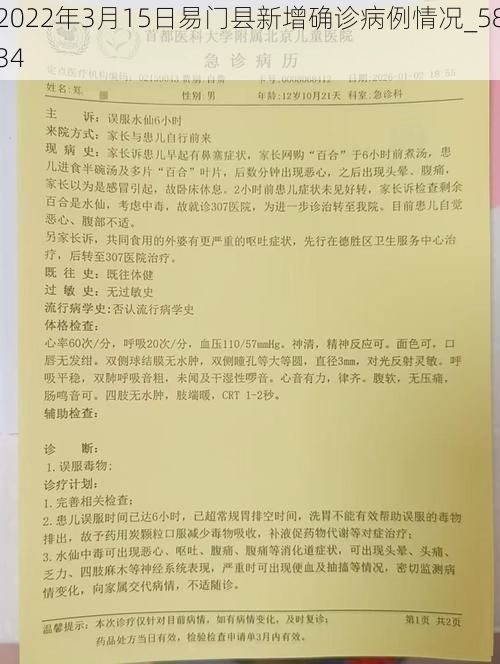 2022年3月15日易门县新增确诊病例情况_58
34
首都医科大学附属北京儿童医院
急诊病历
性别：男
年龄：12岁10月21天
科室：急诊科
主　　诉：误服水仙6小时
来院方式：家长与患儿自行前来
现 病 史：家长诉患儿早起有鼻塞症状，家长网购“百合”于6小时前煮汤，患
儿进食半碗汤及多片“百合”叶片，后数分钟出现恶心，之后出现头晕、腹痛，
家长以为是感冒引起，故卧床休息。2小时前患儿症状未见好转，家长诉检查剩余
百合是水仙，考虑中毒，故就诊307医院，为进一步诊治转至我院。目前患儿自觉
恶心、腹部不适。
另家长诉，共同食用的外婆有更严重的呕吐症状，先行在德胜区卫生服务中心治
疗，后转至307医院治疗。
既 往 史：既往体健
过 敏 史：无过敏史
流行病学史：否认流行病学史
体格检查：
心率60次/分，呼吸20次/分，血压110/57mmHg。神清，精神反应可。面色可。口
唇无发绀。双侧球结膜无水肿，双侧瞳孔等大等圆，直径3mm，对光反射灵敏。呼
吸平稳，双肺呼吸音粗，未闻及干湿性啰音。心音有力，律齐。腹软，无压痛，
肠鸣音可。四肢无水肿，肢端暖，CRT 1-2秒。
辅助检查：
诊　　断：
1.误服毒物；
诊疗计划：
1.完善相关检查；
2.患儿误服时间已达6小时，已超常规胃排空时间，洗胃不能有效帮助误服的毒物
排出，故予药用炭颗粒口服减少毒物吸收，补液促药物代谢等对症治疗；
3.水仙中毒可出现恶心、呕吐、腹痛、腹痛等消化道症状，可出现头晕、头痛、
乏力、四肢麻木等神经系统表现，严重时可出现便血及抽搐等情况，密切监测病
情变化，向家属交代病情，不适随诊。
温馨提示：本次诊疗仅针对目前病情，如有病情变化，及时复诊；
药品处方当日有效，检验检查申请单3月内有效。
第1页 共2页